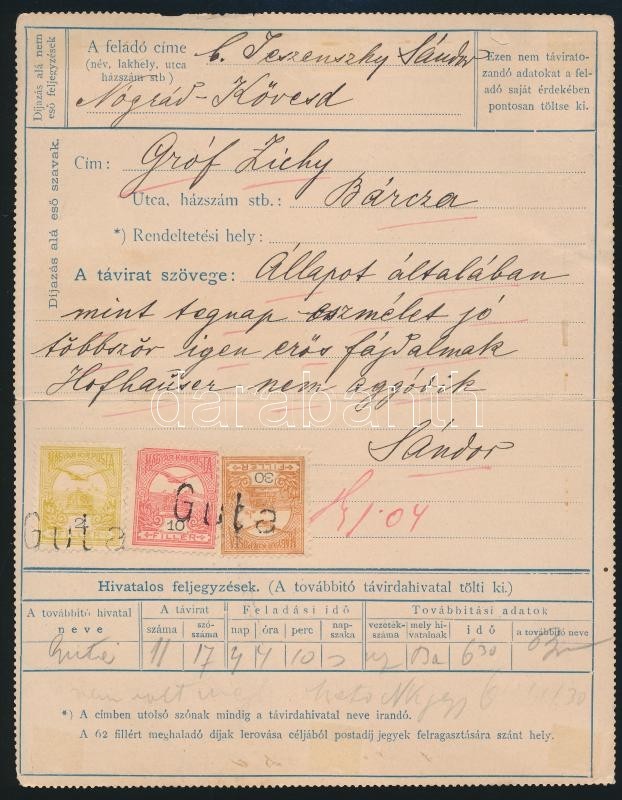 Díjazás alá nem
eső feljegyzések
A feladó címe
(név, lakhely, utca
házszám stb)
b. Jeszenszky Sándor
Nógrád-Kövesd
Ezen nem távirato-
zandó adatokat a fel-
adó saját érdekében
pontosan töltse ki.
Díjazás alá eső szavak.
Cím: Gróf Zichy
Utca, házszám stb.: Bárcza
*) Rendeltetési hely:
A távirat szövege: Állapot általában
mint tegnap eszmélet jó
többször igen erős fájdalmak
Hofhauser nem aggódik
Sándor
darabanth
MAGYAR KIR. POSTA
2
MAGYAR KIR. POSTA
10
FILLÉR
MAGYAR KIR. POSTA
30
FILLÉR
Guta
Guta
1.04
Hivatalos feljegyzések. (A továbbító távirdahivatal tölti ki.)
A továbbító hivatal
neve
A távirat
száma
szó-
száma
Feladási idő
nap
óra
perc
nap-
szaka
Továbbítási adatok
vezeték-
száma
mely hi-
vatalnak
idő
a továbbító neve
11 17 4 4 10 Ba 6 30
nem volt
*) A címben utolsó szónak mindig a távirdahivatal neve irandó.
A 62 fillért meghaladó díjak lerovása céljából postadíj jegyek felragasztására szánt hely.